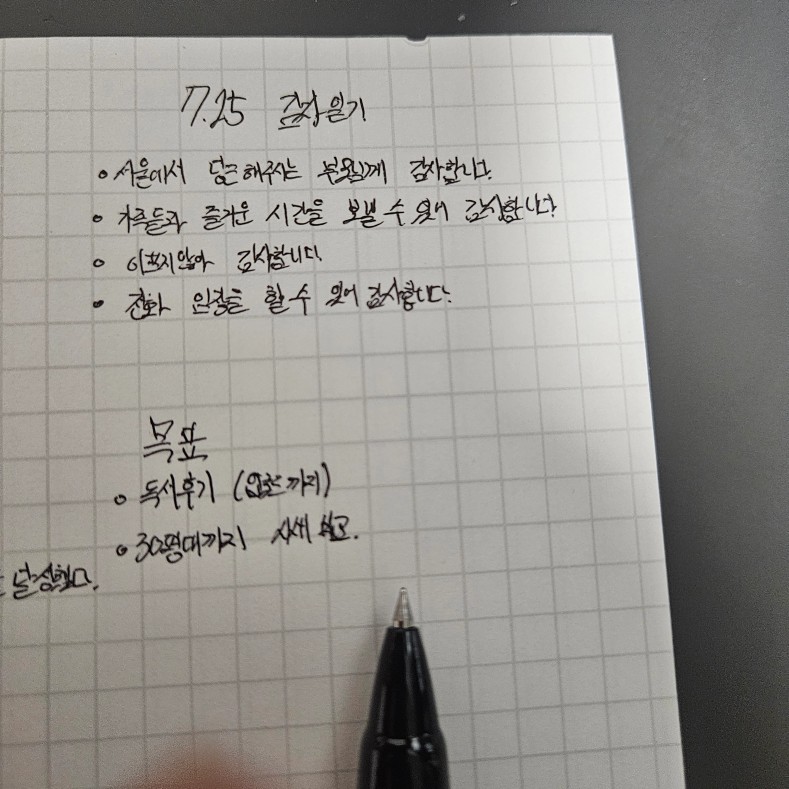 7.25 감사일기
• 서울에서 해주시는 부모님께 감사합니다.
• 가족들과 즐거운 시간을 보낼 수 있어 감사합니다
• 아프지않아 감사합니다.
• 전화 할 수 있어 감사합니다.
목표
• 독서후기 (까지)
• 30명대까지
달성했다.